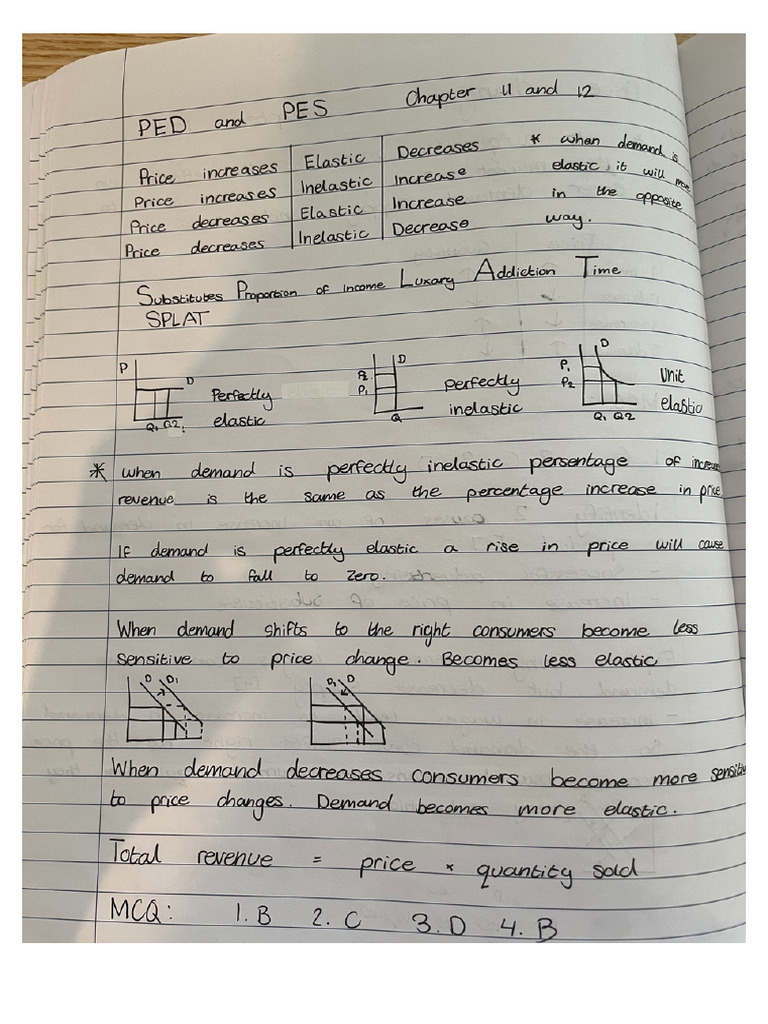 PED and PES Chapter 11 and 12
Price increases Elastic Decreases * when demand is
Price increases Inelastic Increase elastic, it will move
Price decreases Elastic Increase in the opposite
Price decreases Inelastic Decrease way.
Substitutes Proportion of income Luxary Addiction Time
SPLAT
P D Perfectly elastic Q1 Q2
P2 P1 D perfectly inelastic Q
P1 P2 D Unit elastic Q1 Q2
* when demand is perfectly inelastic persentage of increase
revenue is the same as the percentage increase in price
If demand is perfectly elastic a rise in price will cause
demand to fall to zero.
When demand shifts to the right consumers become less
sensitive to price change. Becomes less elastic
D D1 D1 D
When demand decreases consumers become more sensitive
to price changes. Demand becomes more elastic.
Total revenue = price * quantity sold
MCQ: 1. B 2. C 3. D 4. B